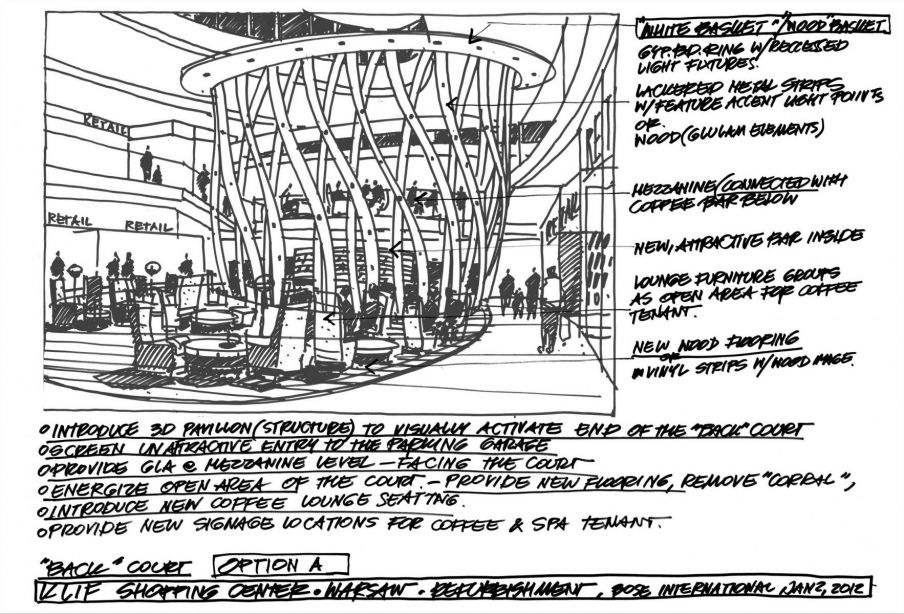 "WHITE BASKET"/"WOOD" BASKET
GYP. BD. RING W/RECESSED
LIGHT FIXTURES.
LACKERED METAL STRIPS
W/FEATURE ACCENT LIGHT POINTS
OR
WOOD (GLULAM ELEMENTS)
MEZZANINE (CONNECTED WITH
COFFEE BAR BELOW
NEW, ATTRACTIVE BAR INSIDE
LOUNGE FURNITURE GROUPS
AS OPEN AREA FOR COFFEE
TENANT.
NEW WOOD FLOORING
OR
VINYL STRIPS W/WOOD IMAGE.
RETAIL
RETAIL
RETAIL
RETAIL
o INTRODUCE 3D PAVILION (STRUCTURE) TO VISUALLY ACTIVATE END OF THE "BACK" COURT
o SCREEN UNATTRACTIVE ENTRY TO THE PARKING GARAGE
o PROVIDE GLA @ MEZZANINE LEVEL – FACING THE COURT
o ENERGIZE OPEN AREA OF THE COURT. – PROVIDE NEW FLOORING, REMOVE "CORRAL",
o INTRODUCE NEW COFFEE LOUNGE SEATING.
o PROVIDE NEW SIGNAGE LOCATIONS FOR COFFEE & SPA TENANT.
"BACK" COURT OPTION A
KLIF SHOPPING CENTER • WARSAW • REFURBISHMENT, BOSE INTERNATIONAL, JAN 2, 2012